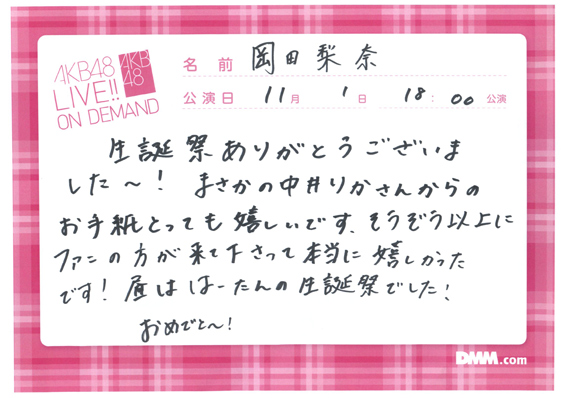 AKB48
LIVE!!
ON DEMAND
AKB
48
名前 岡田梨奈
公演日 11月 1日 18:00公演
生誕祭ありがとうございま
した〜! まさかの中井りかさんからの
お手紙とっても嬉しいです、そうぞう以上に
ファンの方が来て下さって本当に嬉しかった
です! 昼ははーたんの生誕祭でした!
おめでと〜!
DMM.com